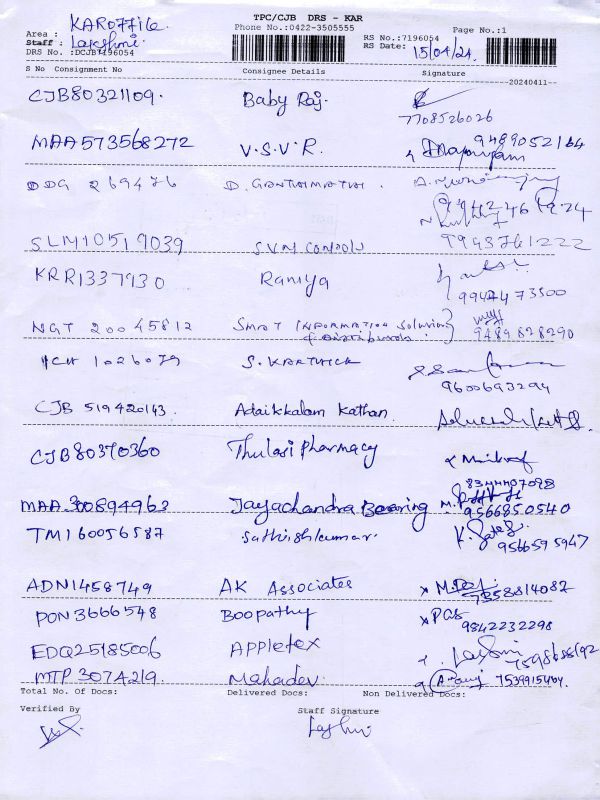 TPC/CJB DRS - KAR
Phone No.:0422-3505555
Page No.:1
Area : KAR office
Staff : Lakshmi
DRS No. :DCJB7196054
RS No.:7196054
RS Date: 15/04/24
S No Consignment No Consignee Details Signature
20240411
CJB80321109. Baby Raj.
7708526026
MAA573568272 V.S.V.R. 9489052164
DDG 269476 D.
9942461924
SLM10519039 SVM
9943761222
KRR1337930 Ramya
9942473500
NGT 20045812 Smart Information Solutions
& Distributors 9489828290
1026079 S. KARTHICK
9600693294
CJB 519420143. Adaikkalam Kathan.
CJB80370360 Thulasi Pharmacy
8344407098
MAA 300894963 Jayachandra Bearing 9566850540
TM160056587 Sathishkumar.
9566595947
ADN1458749 AK Associates
7358814082
PON3666548 Boopathy
9842232298
EDQ25185006 Appletex
MTP 3074219. Mahadev 7539915404.
Total No. Of Docs: Delivered Docs: Non Delivered Docs:
Verified By Staff Signature